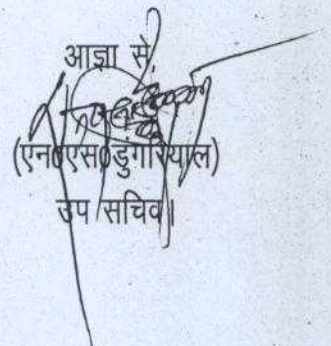 आज्ञा से,
(एन०एस०डुंगरियाल)
उप सचिव।